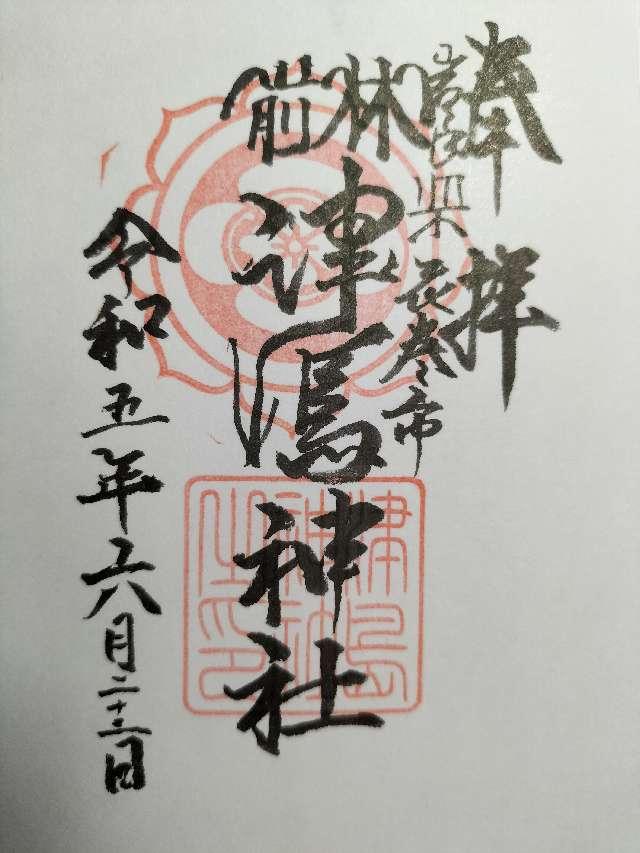 奉拝
岩手県花巻市
林前
津嶋神社
令和五年六月二十三日
津島
神社
之印